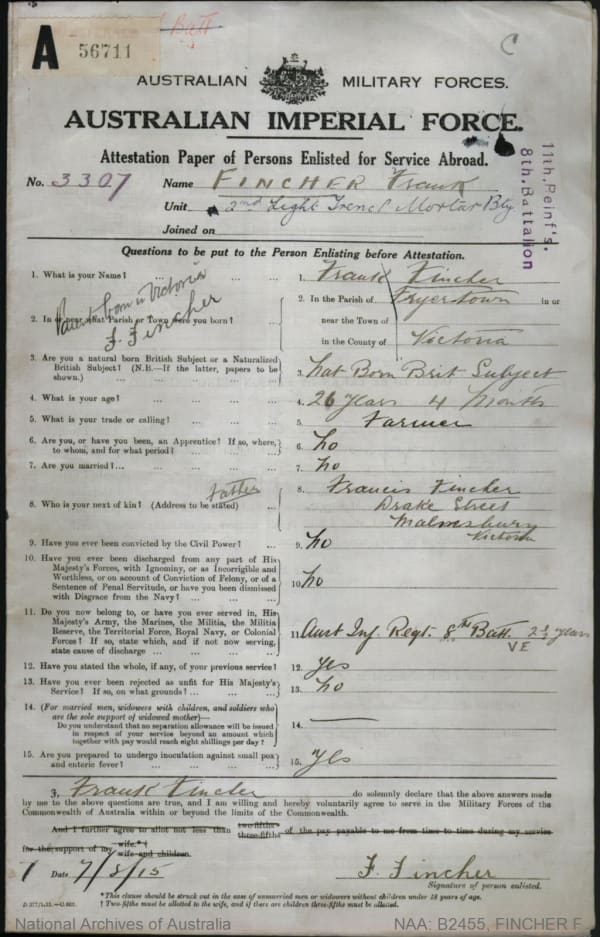 A 56711
C
AUSTRALIAN MILITARY FORCES.
AUSTRALIAN IMPERIAL FORCE.
Attestation Paper of Persons Enlisted for Service Abroad.
11th. Reinf's.
8th. Battalion
No. 3307 Name FINCHER Frank
Unit 2nd Light Trench Mortar Bty
Joined on
Questions to be put to the Person Enlisting before Attestation.
1. What is your Name? ... ... ... 1. Frank Fincher
Parents born in Victoria
F. Fincher
2. In or near what Parish or Town were you born? ... 2. In the Parish of Fryertown in or
near the Town of
in the County of Victoria
3. Are you a natural born British Subject or a Naturalized
British Subject? (N.B.—If the latter, papers to be
shown.) ... ... ... ... 3. Nat Born Brit Subject
4. What is your age? ... ... ... 4. 26 Years 4 Month
5. What is your trade or calling? ... ... ... 5. Farmer
6. Are you, or have you been, an Apprentice? If so, where,
to whom, and for what period? ... ... ... 6. No
7. Are you married?... ... ... ... 7. No
Father
8. Who is your next of kin? (Address to be stated) ... 8. Francis Fincher
Drake Street
Malmsbury
Victoria
9. Have you ever been convicted by the Civil Power? ... 9. No
10. Have you ever been discharged from any part of His
Majesty's Forces, with Ignominy, or as Incorrigible and
Worthless, or on account of Conviction of Felony, or of a
Sentence of Penal Servitude, or have you been dismissed
with Disgrace from the Navy? ... ... ... 10. No
11. Do you now belong to, or have you ever served in, His
Majesty's Army, the Marines, the Militia, the Militia
Reserve, the Territorial Force, Royal Navy, or Colonial
Forces? If so, state which, and if not now serving,
state cause of discharge ... ... ... 11. Aust Inf. Regt. 8th Batt. 2½ years
VE
12. Have you stated the whole, if any, of your previous service? 12. Yes
13. Have you ever been rejected as unfit for His Majesty's
Service? If so, on what grounds? ... ... ... 13. No
14. (For married men, widowers with children, and soldiers who
are the sole support of widowed mother)—
Do you understand that no separation allowance will be issued
in respect of your service beyond an amount which
together with pay would reach eight shillings per day? ... 14. —
15. Are you prepared to undergo inoculation against small pox
and enteric fever? ... ... ... ... 15. Yes
I, Frank Fincher do solemnly declare that the above answers made
by me to the above questions are true, and I am willing and hereby voluntarily agree to serve in the Military Forces of the
Commonwealth of Australia within or beyond the limits of the Commonwealth.
And I further agree to allot not less than two-fifths three-fifths of the pay payable to me from time to time during my service
for the support of my wife.*† wife and children.
Date 7/8/15 F. Fincher
Signature of person enlisted.
*This clause should be struck out in the case of unmarried men or widowers without children under 18 years of age.
† Two-fifths must be allotted to the wife, and if there are children three-fifths must be allotted.
National Archives of Australia NAA: B2455, FINCHER F